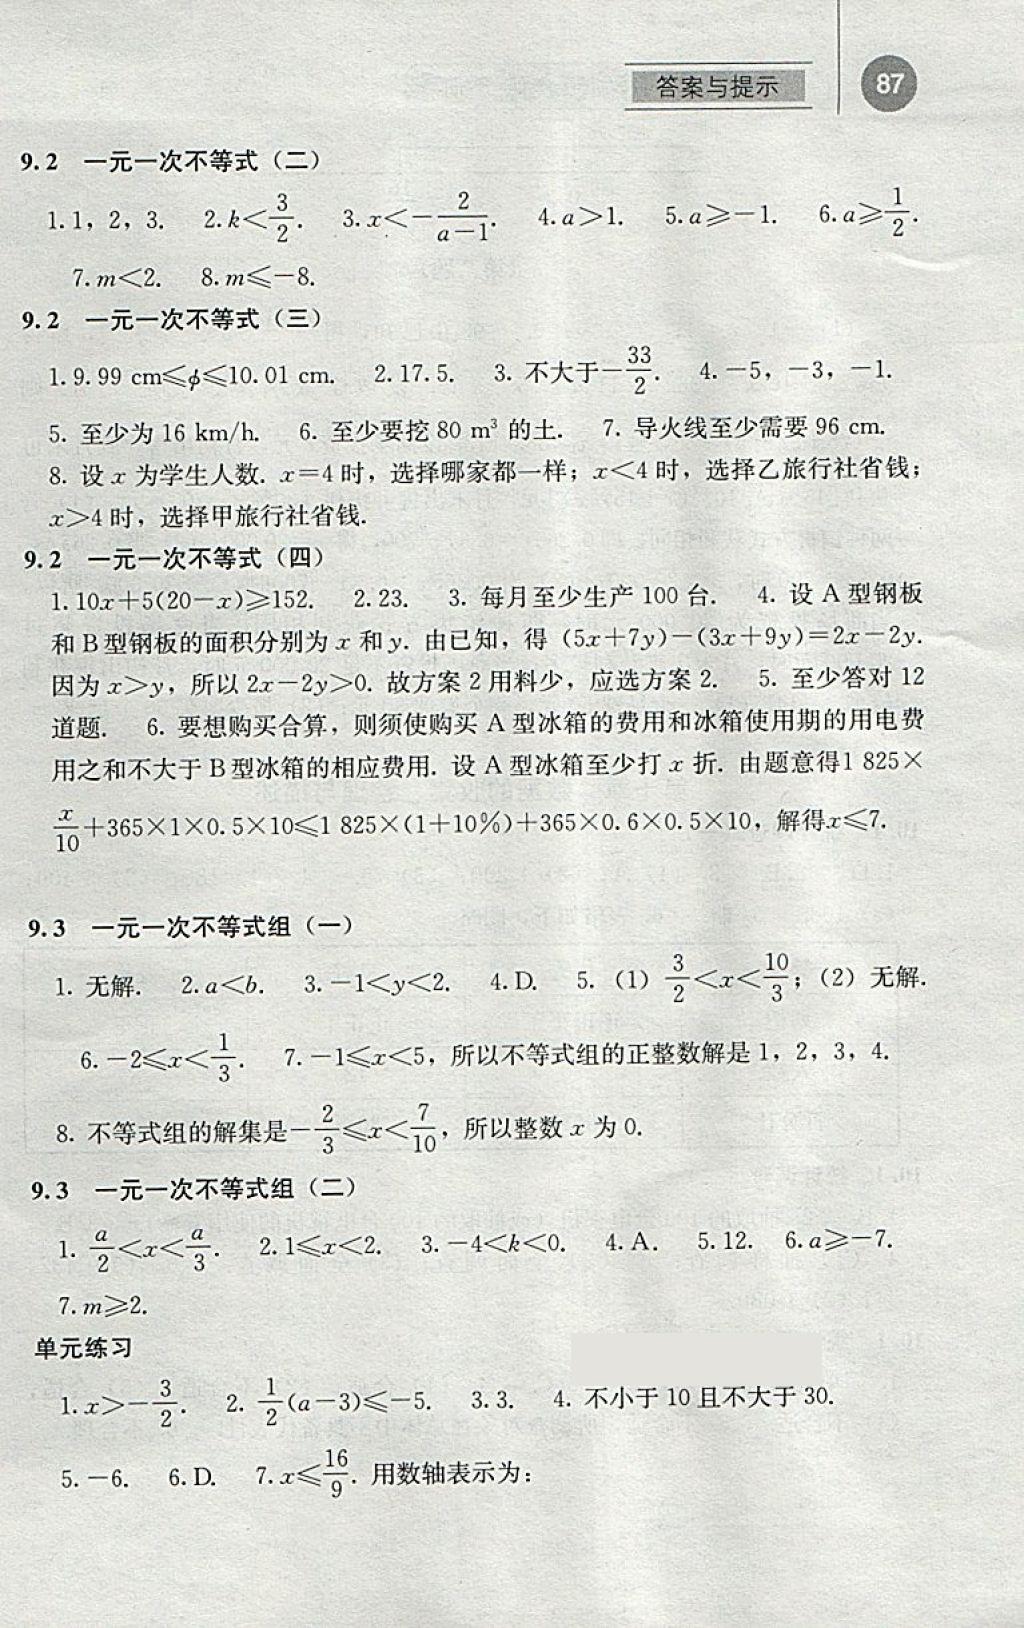 答案与提示 87
9.2 一元一次不等式（二）
1.1，2，3. 2.k<3/2. 3.x<-2/(a-1). 4.a>1. 5.a≥-1. 6.a≥1/2.
7.m<2. 8.m≤-8.
9.2 一元一次不等式（三）
1.9.99 cm≤ϕ≤10.01 cm. 2.17.5. 3. 不大于-33/2. 4.-5，-3，-1.
5. 至少为 16 km/h. 6. 至少要挖 80 m³ 的土. 7. 导火线至少需要 96 cm.
8. 设 x 为学生人数. x=4 时，选择哪家都一样；x<4 时，选择乙旅行社省钱；
x>4 时，选择甲旅行社省钱.
9.2 一元一次不等式（四）
1.10x+5(20-x)≥152. 2.23. 3. 每月至少生产 100 台. 4. 设 A 型钢板
和 B 型钢板的面积分别为 x 和 y. 由已知，得 (5x+7y)-(3x+9y)=2x-2y.
因为 x>y，所以 2x-2y>0. 故方案 2 用料少，应选方案 2. 5. 至少答对 12
道题. 6. 要想购买合算，则须使购买 A 型冰箱的费用和冰箱使用期的用电费
用之和不大于 B 型冰箱的相应费用. 设 A 型冰箱至少打 x 折. 由题意得1 825×
x/10+365×1×0.5×10≤1 825×(1+10%)+365×0.6×0.5×10，解得x≤7.
9.3 一元一次不等式组（一）
1. 无解. 2.a<b. 3.-1<y<2. 4.D. 5.（1）3/2<x<10/3；（2）无解.
6.-2≤x<1/3. 7.-1≤x<5，所以不等式组的正整数解是 1，2，3，4.
8. 不等式组的解集是-2/3≤x<7/10，所以整数 x 为 0.
9.3 一元一次不等式组（二）
1. a/2<x<a/3. 2.1≤x<2. 3.-4<k<0. 4.A. 5.12. 6.a≥-7.
7.m≥2.
单元练习
1.x>-3/2. 2. 1/2(a-3)≤-5. 3.3. 4. 不小于 10 且不大于 30.
5.-6. 6.D. 7.x≤16/9. 用数轴表示为：